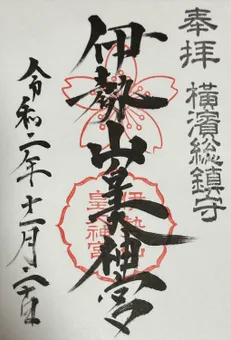 奉拝 横濱総鎮守
伊勢山皇大神宮
伊勢山
皇大神宮
令和二年十一月二十日